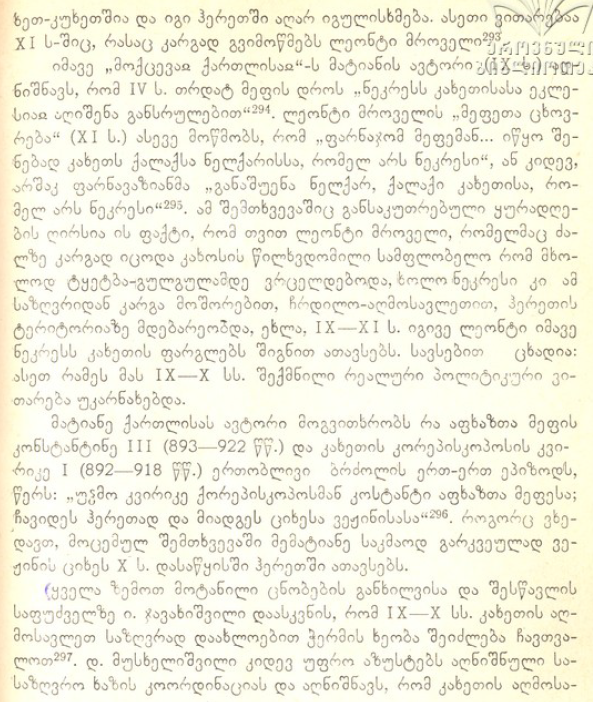 ხეთ-კუხეთშია და იგი ჰერეთში აღარ იგულისხმება. ასეთი ვითარებაა
XI ს-შიც, რასაც კარგად გვიმოწმებს ლეონტი მროველი²⁹³
იმავე „მოქცევაჲ ქართლისაჲ“-ს მატიანის ავტორი (IX ს.) აღ-
ნიშნავს, რომ IV ს. თრდატ მეფის დროს „ნეკრესს კახეთისასა ეკლე-
სიაჲ აღიშენა განსრულებით“²⁹⁴. ლეონტი მროველის „მეფეთა ცხოვ-
რება“ (XI ს.) ასევე მოწმობს, რომ „ფარნაჯომ მეფემან... იწყო შე-
ნებად კახეთს ქალაქსა ნელქარისსა, რომელ არს ნეკრესი“, ან კიდევ,
არშაკ ფარნავაზიანმა „განაშუენა ნელქარ, ქალაქი კახეთისა, რო-
მელ არს ნეკრესი“²⁹⁵. ამ შემთხვევაშიც განსაკუთრებული ყურადღე-
ბის ღირსია ის ფაქტი, რომ თვით ლეონტი მროველი, რომელმაც ძა-
ლზე კარგად იცოდა კახოსის წილხვდომილი სამფლობელო რომ მხო-
ლოდ ტყეტბა-გულგულამდე ვრცელდებოდა, ხოლო ნეკრესი კი ამ
საზღვრიდან კარგა მოშორებით, ჩრდილო-აღმოსავლეთით, ჰერეთის
ტერიტორიაზე მდებარეობდა, ეხლა, IX—XI ს. იგივე ლეონტი იმავე
ნეკრესს კახეთის ფარგლებს შიგნით ათავსებს. სავსებით ცხადია:
ასეთ რამეს მას IX—X სს. შექმნილი რეალური პოლიტიკური ვი-
თარება უკარნახებდა.
მატიანე ქართლისას ავტორი მოგვითხრობს რა აფხაზთა მეფის
კონსტანტინე III (893—922 წწ.) და კახეთის კორეპისკოპოსის კვი-
რიკე I (892—918 წწ.) ერთობლივი ბრძოლის ერთ-ერთ ეპიზოდს,
წერს: „უჴმო კვირიკე ქორეპისკოპოსმან კოსტანტი აფხაზთა მეფესა;
ჩავიდეს ჰერეთად და მიადგეს ციხესა ვეჟინისასა“²⁹⁶. როგორც ვხე-
დავთ, მოცემულ შემთხვევაში მემატიანე საკმაოდ გარკვეულად ვე-
ჟინის ციხეს X ს. დასაწყისში ჰერეთში ათავსებს.
ყველა ზემოთ მოტანილი ცნობების განხილვისა და შესწავლის
საფუძველზე ი. ჯავახიშვილი დაასკვნის, რომ IX—X სს. კახეთის აღ-
მოსავლეთ საზღვრად დაახლოებით ჭერმის ხეობა შეიძლება ჩავთვა-
ლოთ²⁹⁷. დ. მუსხელიშვილი კიდევ უფრო აზუსტებს აღნიშნული სა-
საზღვრო ხაზის კოორდინაციას და აღნიშნავს, რომ კახეთის აღმოსა-